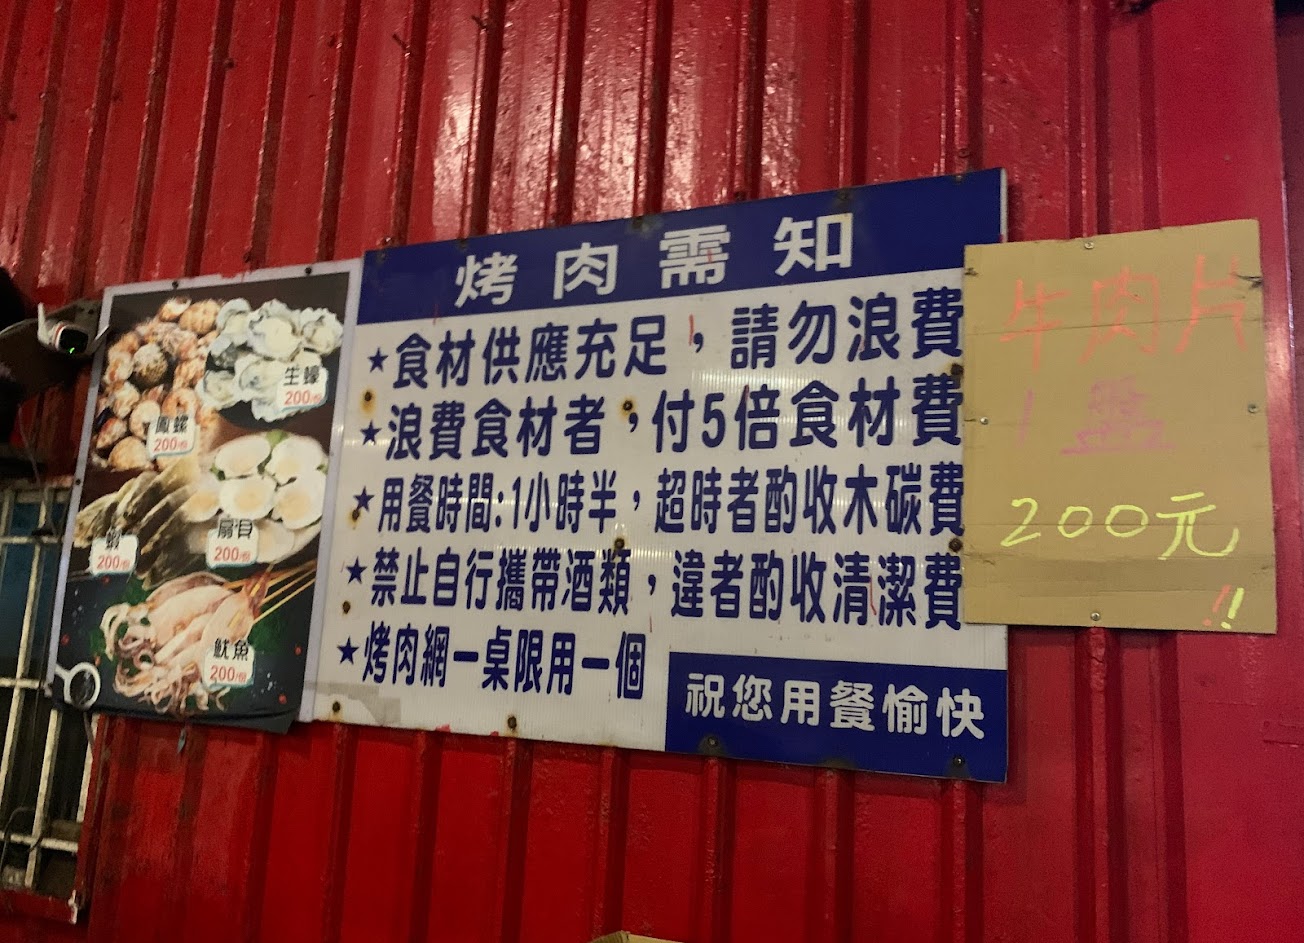 生蠔
200/份
鳳螺
200/份
扇貝
200/份
蝦
200/份
魷魚
200/份
烤肉需知
★食材供應充足，請勿浪費
★浪費食材者，付5倍食材費
★用餐時間:1小時半，超時者酌收木碳費
★禁止自行攜帶酒類，違者酌收清潔費
★烤肉網一桌限用一個
祝您用餐愉快
牛肉片
1盤
200元
!!